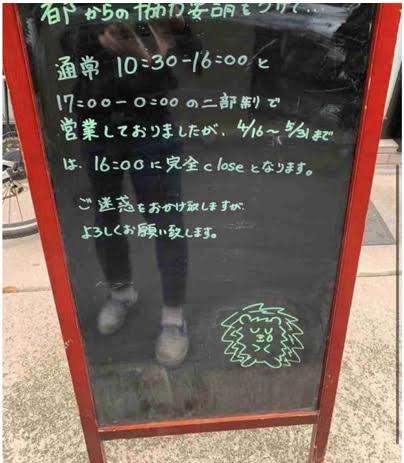 都からの協力要請をうけて...
通常 10:30-16:00と
17:00-0:00の二部制で
営業しておりましたが、4/16～5/31まで
は、16:00に完全closeとなります。
ご迷惑をおかけ致しますが
よろしくお願い致します。